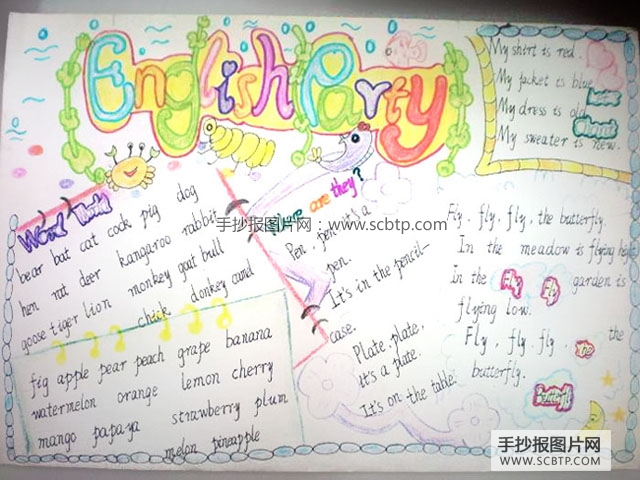 English Party
My shirt is red.
My jacket is blue
My dress is old
My sweater is new.
Word World
bear bat cat cock pig dog
hen rat deer kangaroo rabbit
goose tiger lion monkey goat bull
chick donkey camel
fig apple pear peach grape banana
watermelon orange lemon cherry
mango papaya strawberry plum
melon pineapple
Where are they?
Pen, pen, it's a
pen.
It's in the pencil-
case.
Plate, plate,
it's a plate.
It's on the table.
Fly, fly, fly, the butterfly.
In the meadow is flying high
In the Fly Fly garden is
flying low.
Fly, fly, fly, the the
butterfly.
手抄报图片网:www.scbtp.com
手抄报图片网
WWW.SCBTP.COM